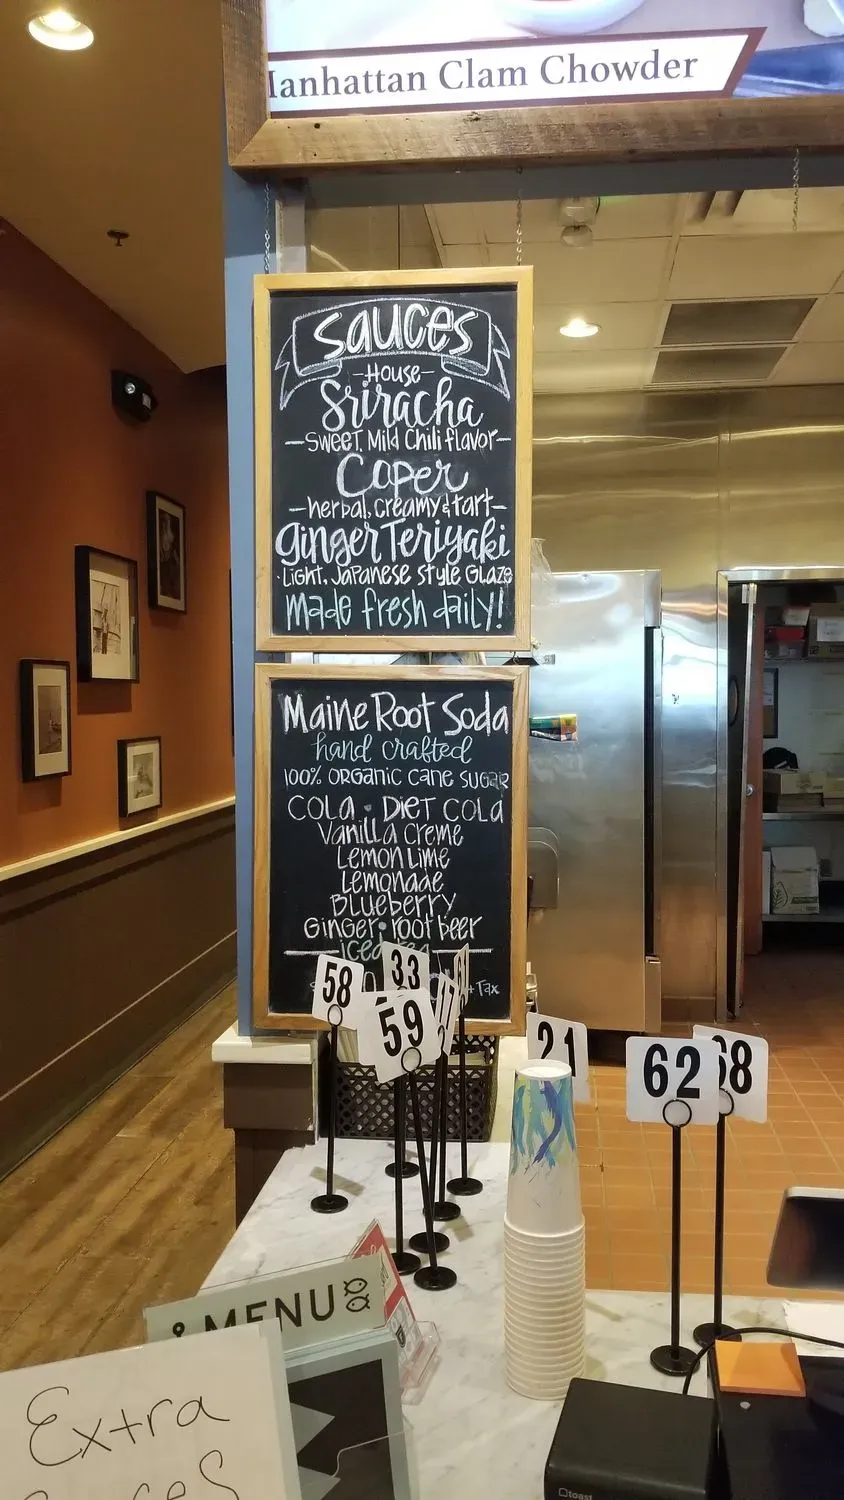 Manhattan Clam Chowder
Sauces
-House-
Sriracha
-Sweet, Mild Chili flavor-
Caper
-herbal, creamy & tart-
Ginger Teriyaki
Light, Japanese Style Glaze
Made fresh daily!
Maine Root Soda
hand crafted
100% organic cane sugar
Cola • Diet Cola
Vanilla Creme
Lemon Lime
Lemonade
Blueberry
Ginger • root beer
iced
+ Tax
58
33
59
21
62
68
& MENU
Extra
toast